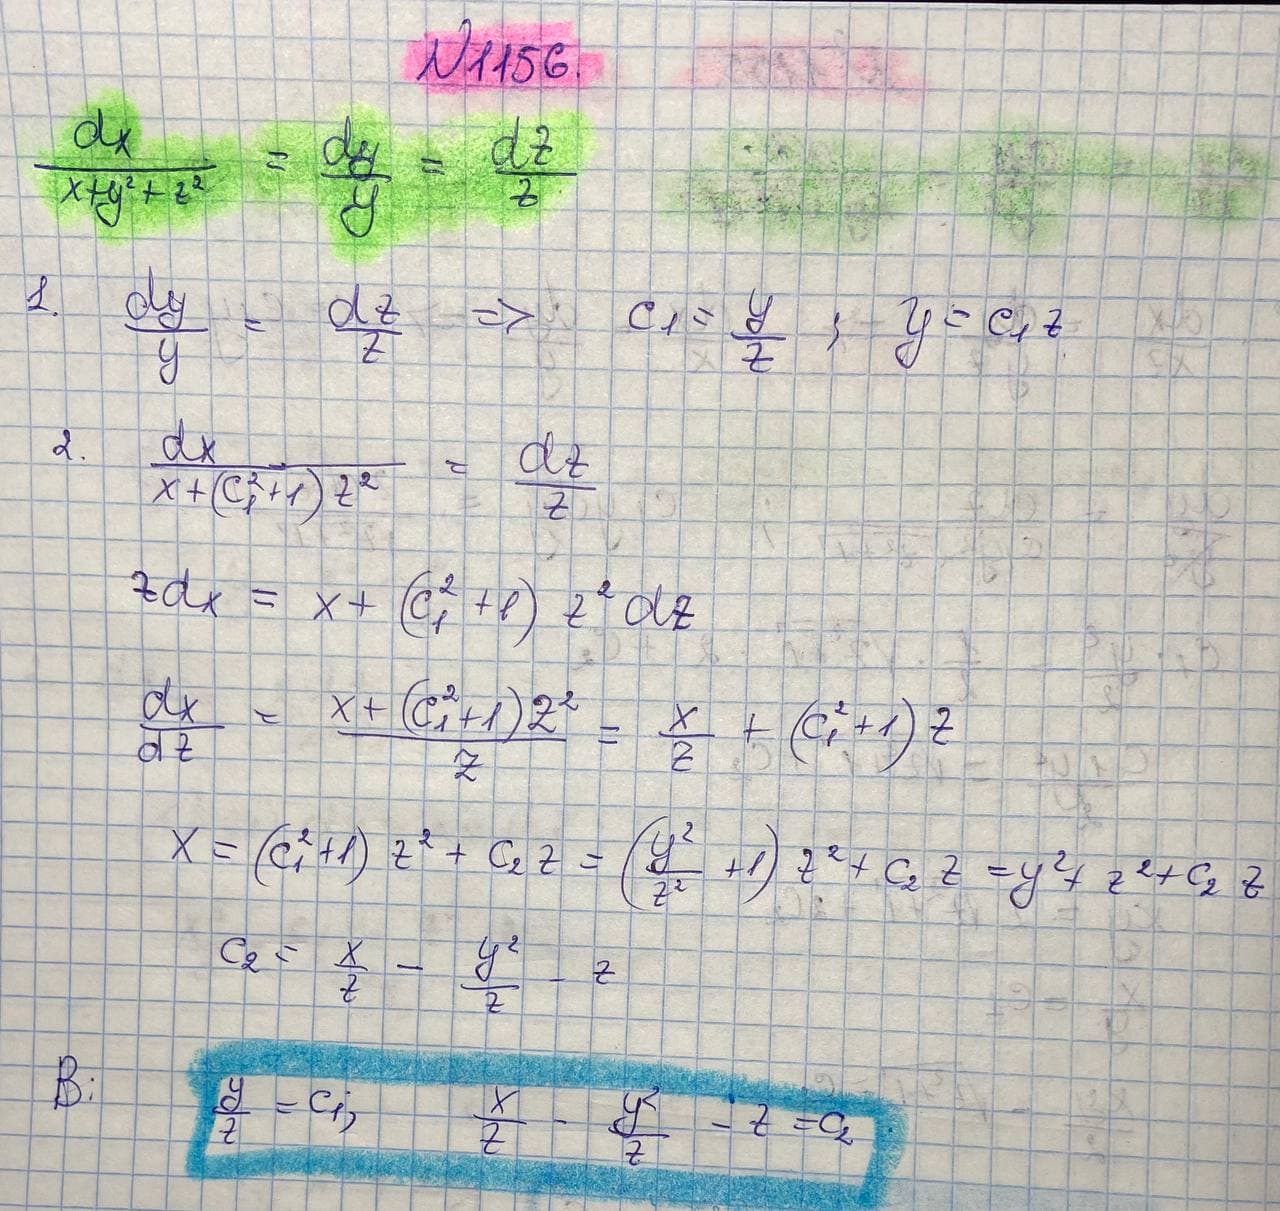 N1156.
dx/(x+y²+z²) = dy/y = dz/z
1. dy/y = dz/z => C₁ = y/z ; y = C₁z
2. dx/(x+(C₁²+1)z²) = dz/z
zdx = x + (C₁²+1) z² dz
dx/dz = (x+(C₁²+1)z²)/z = x/z + (C₁²+1) z
x = (C₁²+1) z² + C₂ z = (y²/z² +1) z² + C₂ z = y² + z² + C₂ z
C₂ = x/z - y²/z - z
В: y/z = C₁; x/z - y²/z - z = C₂